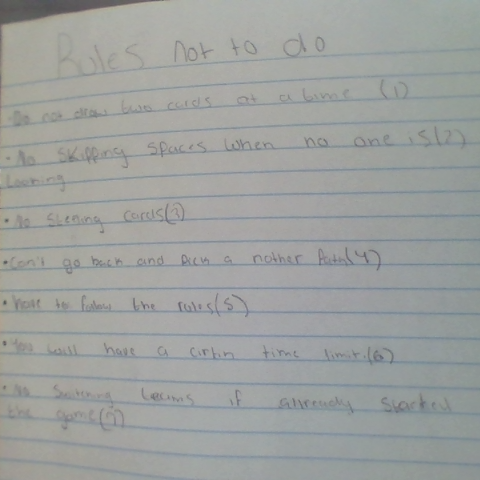 Rules not to do
Do not draw two cards at a time (1)
• No skipping spaces when no one is (2)
Looking
• No stening cards (3)
• Can't go back and pick a nother Path (4)
• have to follow the rules (5)
• You will have a cirtin time limit. (6)
• No switching teams if alrready started
the game (7)